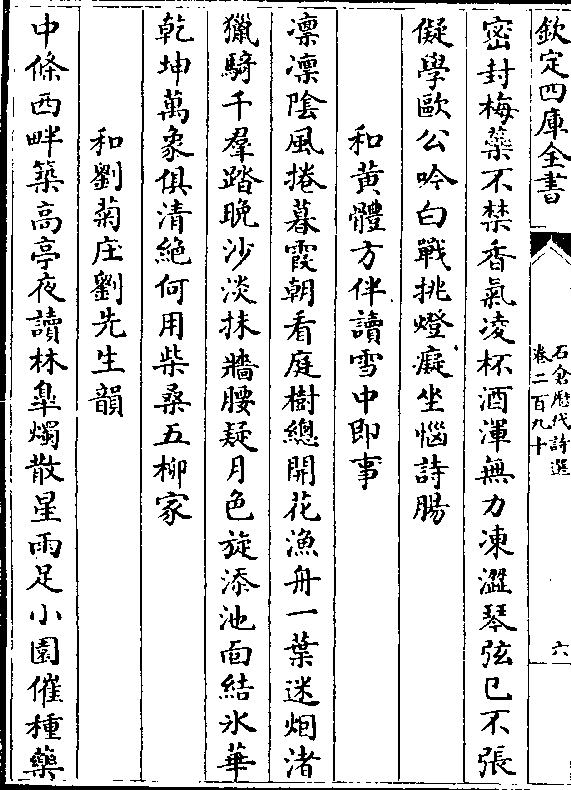 欽定四庫全書
石倉歷代詩選
卷二百九十
六
密封梅蘂不禁香氣凌杯酒渾無力凍澀琴弦已不張
儗學歐公吟白戰挑燈癡坐惱詩腸
和黃體方伴讀雪中即事
凛凛陰風捲暮霞朝看庭樹總開花漁舟一葉迷烟渚
獵騎千羣踏晚沙淡抹牆腰疑月色旋添池面結氷華
乾坤萬象俱清絶何用柴桑五柳家
和劉菊庄劉先生韻
中條西畔築高亭夜讀林臯燭散星雨足小園催種藥